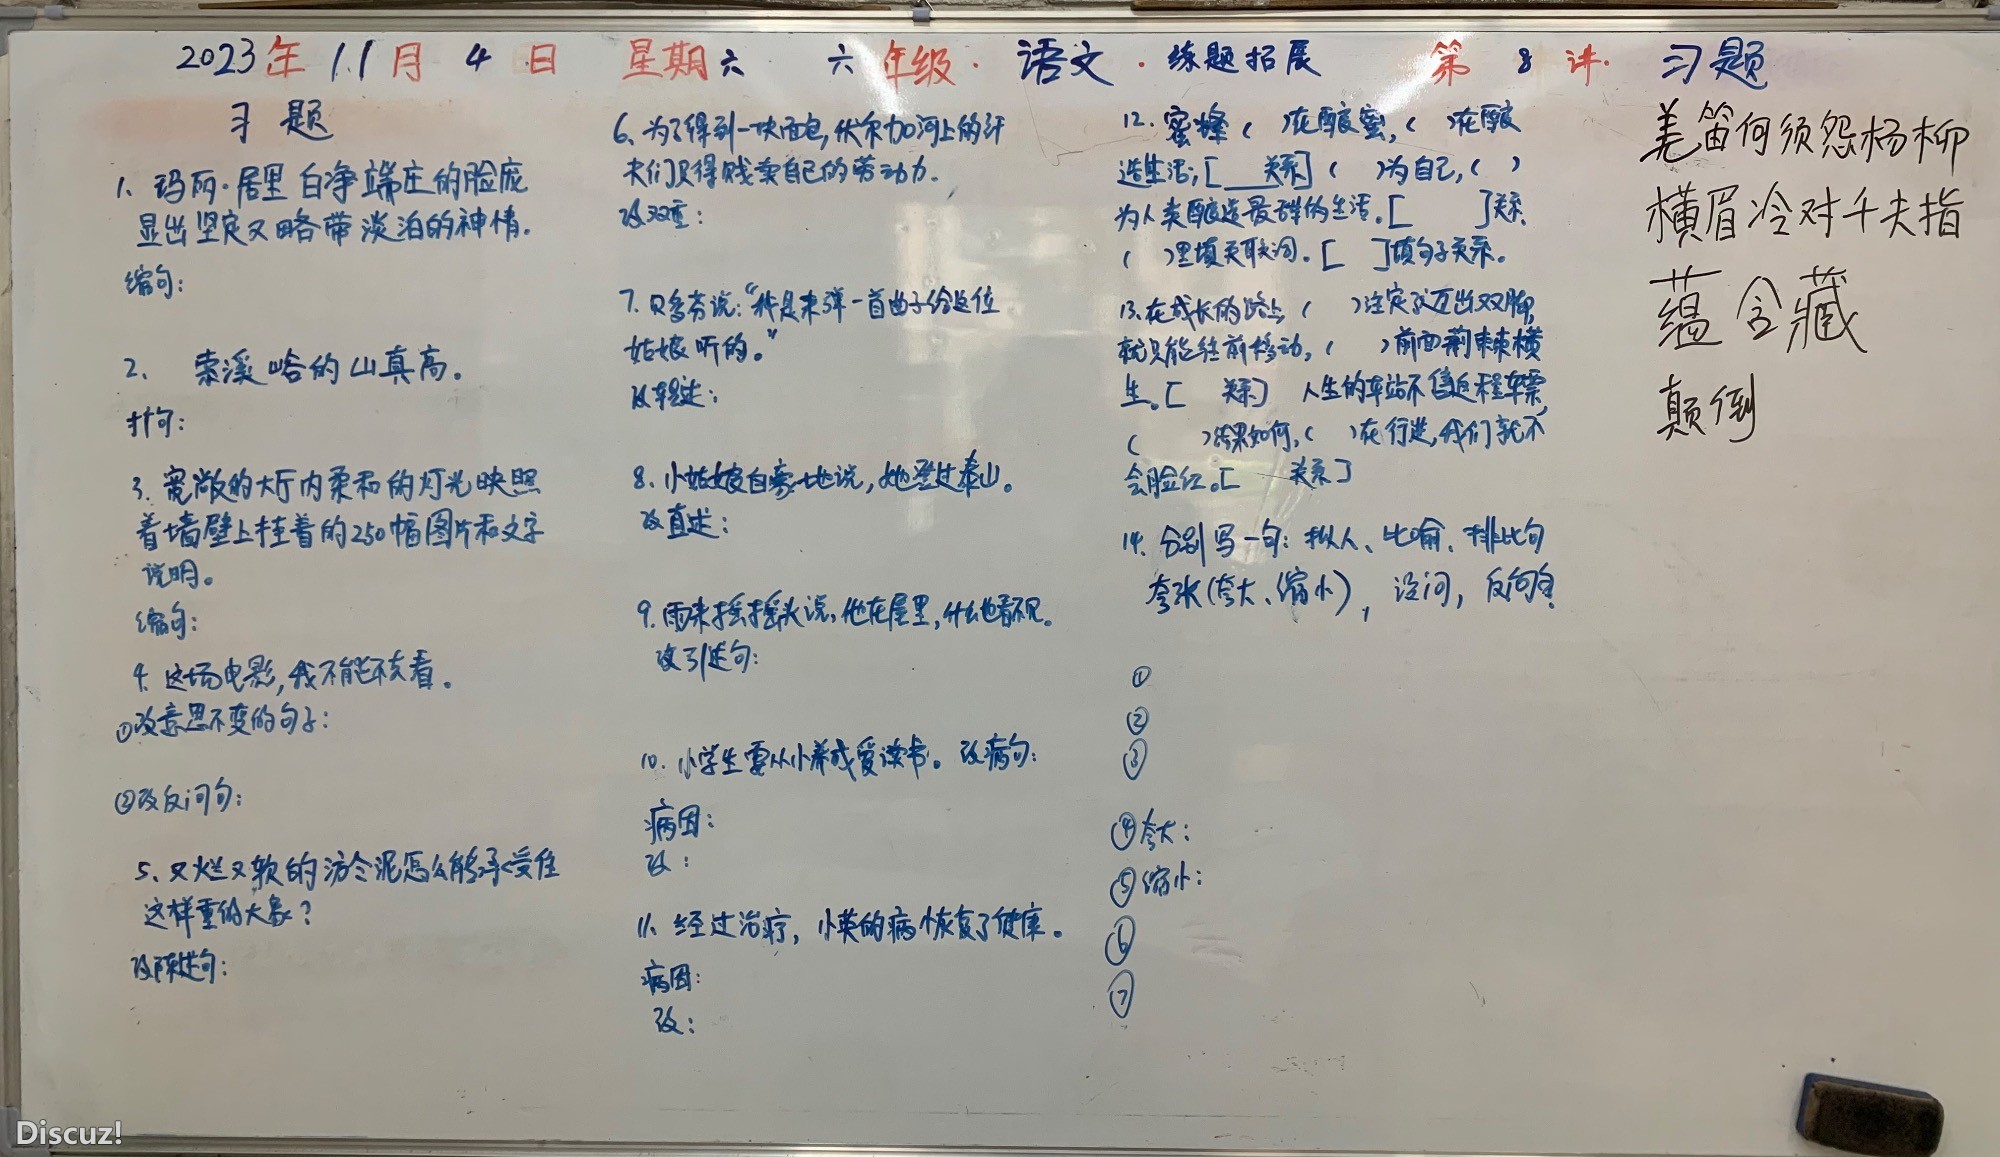 2023年11月4日 星期六 六年级·语文·练题拓展 第8讲·习题
习题
1. 玛丽·居里白净端庄的脸庞
显出坚定又略带淡泊的神情.
缩句:
2、索溪峪的山真高。
扩句:
3. 宽敞的大厅内柔和的灯光映照
着墙壁上挂着的250幅图片和文字
说明。
缩句:
4. 这场电影,我不能不去看。
①改意思不变的句子:
②改反问句:
5、又烂又软的淤泥怎么能承受住
这样重的大象?
改陈述句:
6、为了得到一块面包,伏尔加河上的纤
夫们只得贱卖自己的劳动力.
改双重:
7. 贝多芬说:“我是来弹一首曲子给这位
姑娘听的。”
改转述:
8. 小姑娘自豪地说,她登过泰山。
改直述:
9. 雨来摇摇头说,他在屋里,什么也看不见。
改引述句:
10. 小学生要从小养成爱读书。改病句:
病因:
改:
11、经过治疗,小英的病恢复了健康。
病因:
改:
12. 蜜蜂( )在酿蜜,( )在酿
造生活;[ 关系]( )为自己,( )
为人类酿造最甜的生活.[ ]关系.
( )里填关联词.[ ]填句子关系。
13.在成长的路上,( )注定了迈出双脚,
就只能往前移动,( )前面荆棘横
生。[ 关系] 人生的车站不售返程车票,
( )结果如何,( )在行进,我们就不
会脸红。[ 关系]
14. 分别写一句:拟人、比喻、排比句
夸张(夸大、缩小),设问,反问句?
①
②
③
④夸大:
⑤缩小:
⑥
⑦
羌笛何须怨杨柳
横眉冷对千夫指
蕴含藏
颠倒
Discuz!